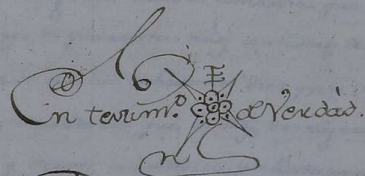 En testim.º de Verdád.